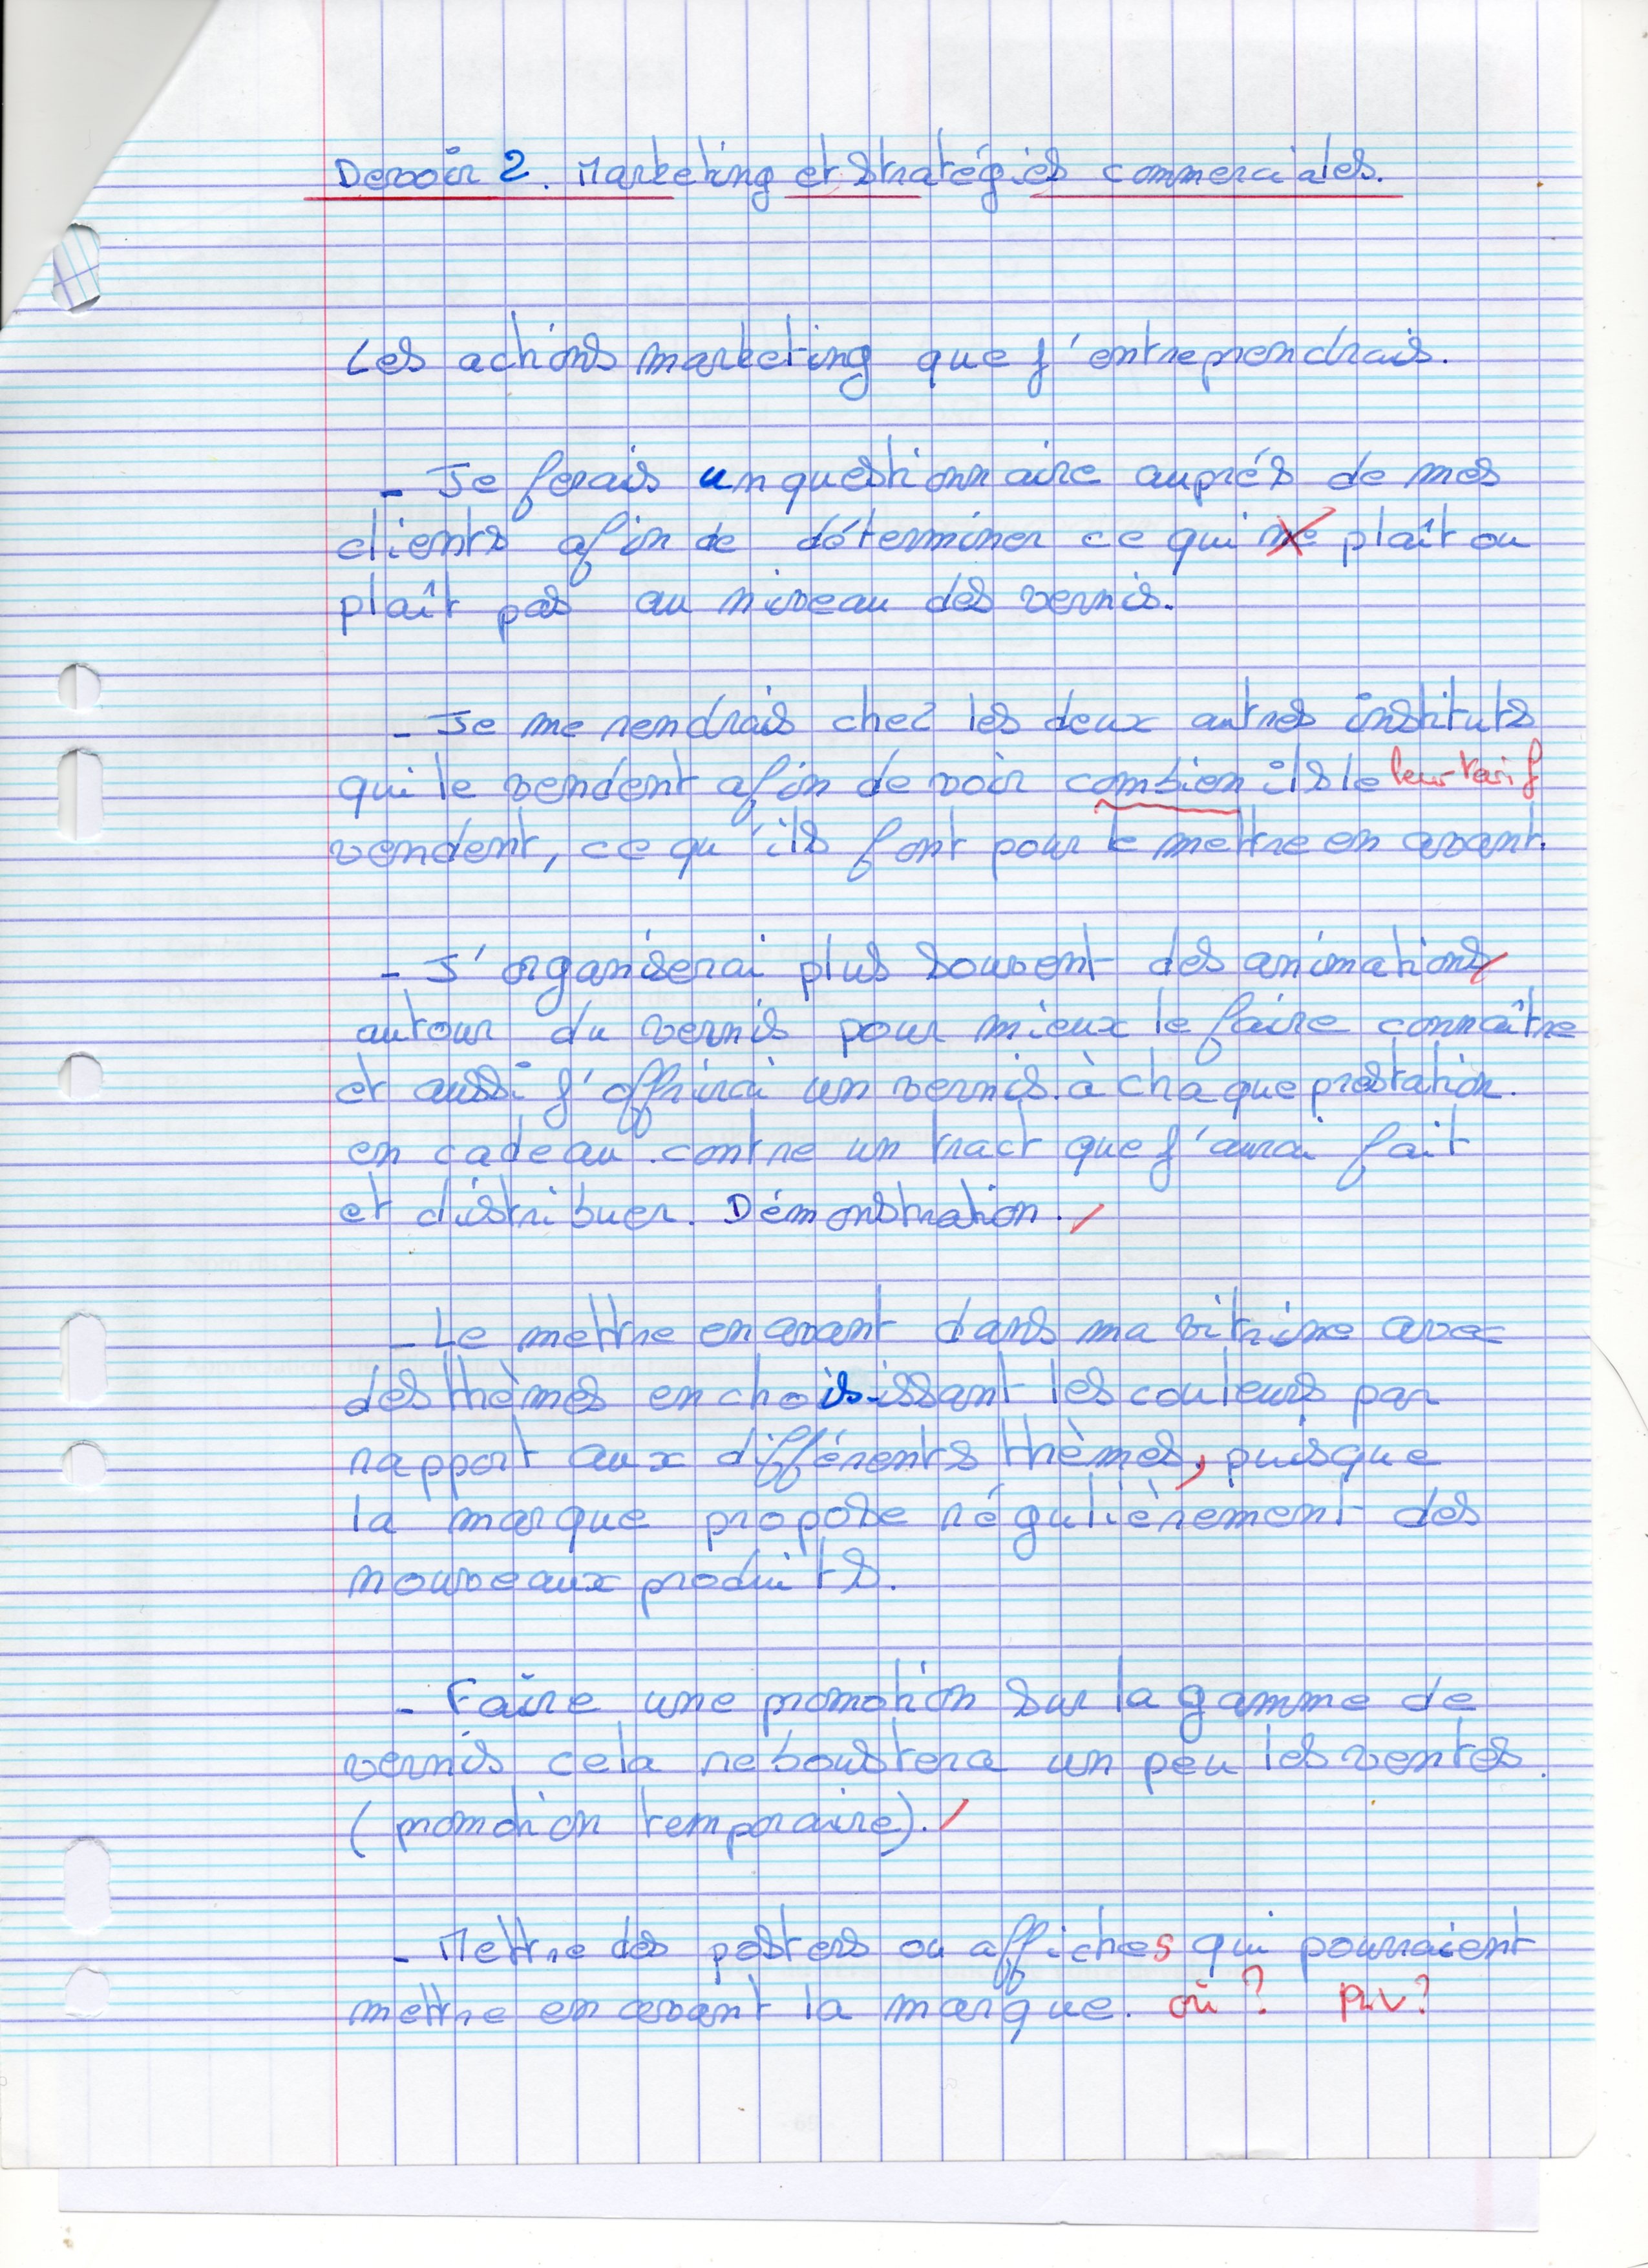 Devoir 2. Marketing et stratégies commerciales.
Les actions marketing que j'entreprendrais.
- Je ferais un questionnaire auprés de mes
clients afin de déterminer ce qui ne plaît ou
plaît pas au niveau des vernis.
- Je me rendrais chez les deux autres instituts
qui le vendent afin de voir combien ils le leur tarif
vendent, ce qu'ils font pour le mettre en avant.
- J'organiserai plus souvent des animations
autour du vernis pour mieux le faire connaître
et aussi j'offrirai un vernis à chaque prestation.
en cadeau contre un tract que j'aurai fait
et distribuer. Démonstration.
- Le mettre en avant dans ma vitrine avec
des thèmes en choisissant les couleurs par
rapport aux différents thèmes, puisque
la marque propose régulièrement des
nouveaux produits.
- Faire une promotion sur la gamme de
vernis cela reboustera un peu les ventes.
(promotion temporaire).
- Mettre des posters ou affiches qui pourraient
mettre en avant la marque. où ? PLV ?